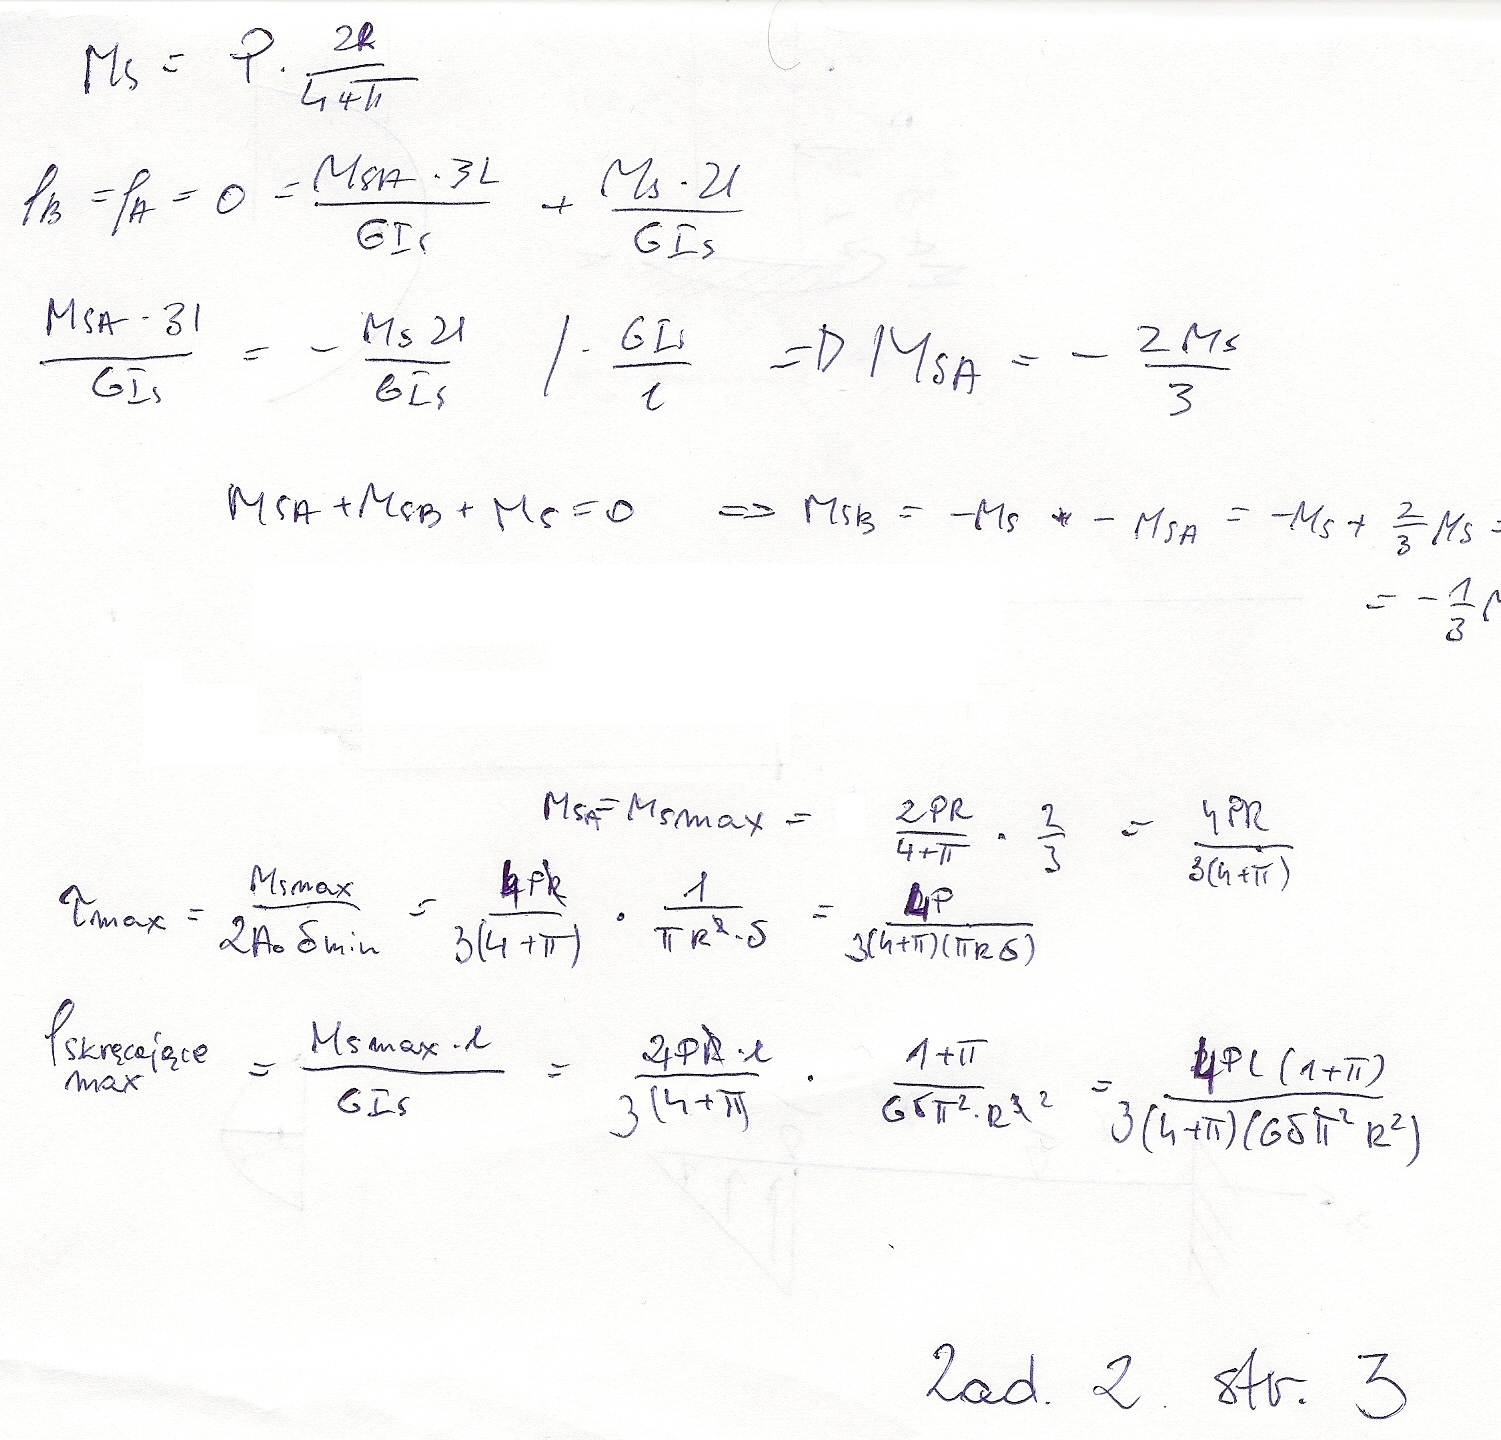 Ms = P · 2R/(4+π)
φB = φA = 0 = MSA · 3L/GIs + Ms · 2l/GIs
MSA · 3l/GIs = - Ms 2l/GIs / · GIs/l => MSA = - 2Ms/3
MSA + MSB + Ms = 0 => MSB = -Ms - MSA = -Ms + 2/3 Ms =
= - 1/3 M
MSA = Msmax = 2PR/(4+π) · 2/3 = 4PR/3(4+π)
τmax = Msmax/(2A0 δmin) = 4PR/3(4+π) · 1/(πR²·δ) = 4P/(3(4+π)(πRδ))
φskręcające max = Msmax·l/GIs = 4PR·l/3(4+π) · (1+π)/(Gδπ²·R³ ²) = 4Pl(1+π)/(3(4+π)(Gδπ²R²))
Zad. 2. str. 3